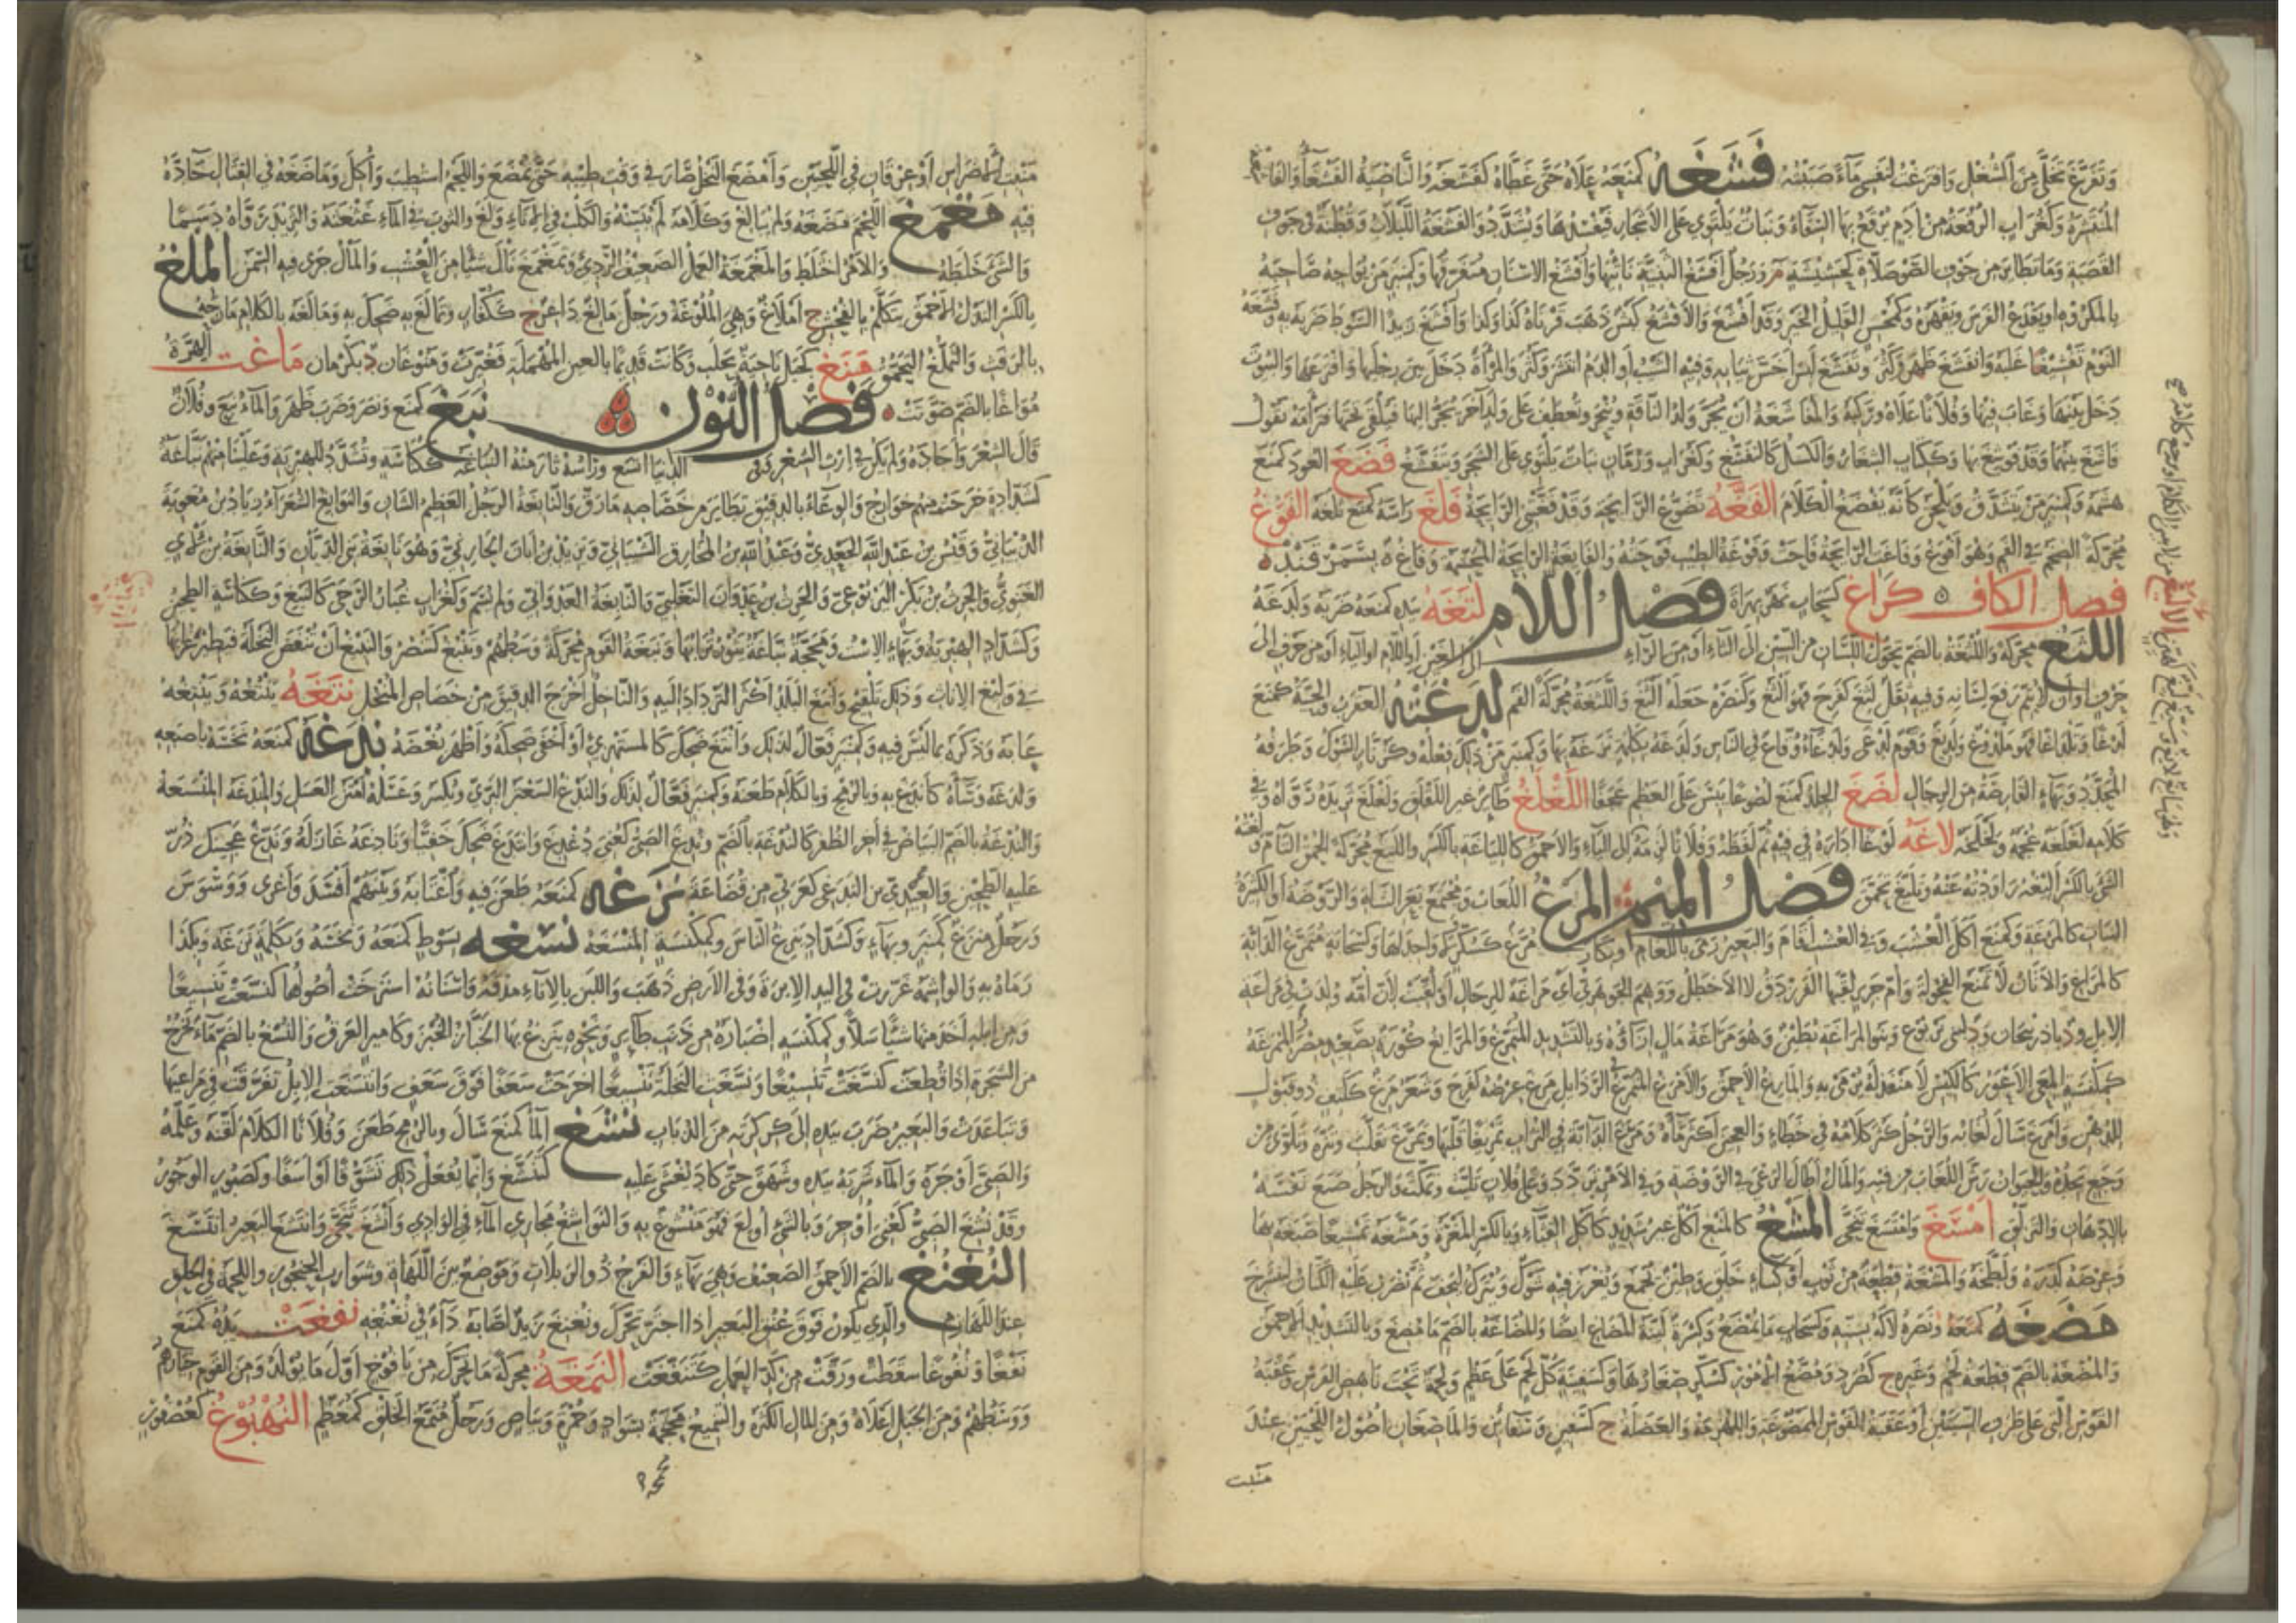 وَتَفَرَّغَ تَخَلَّى مِنَ الشُّغْلِ وَافْتَرَغْتُ لِنَفْسِي مَاءً صَبَبْتُهُ فَشَغَهُ كَمَنَعَهُ عَلَاهُ حَتَّى غَطَّاهُ كَفَشَّغَهُ وَالنَّاصِيَةُ الفَشْغَاءُ
المُنْتَشِرَةُ وَكَغُرَابٍ الرُّقْعَةُ مِنْ أَدَمٍ يُرْقَعُ بِهَا السِّقَاءُ وَنَبَاتٌ يَلْتَوِي عَلَى الأَشْجَارِ فَيُفْسِدُهَا وَيُشَدَّدُ وَالفَشْغَةُ اللَّبْلَابُ وَقُطْنَةٌ فِي جَوْفِ
القَصَبَةِ وَمَا تَطَايَرَ مِنْ جَوْفِ الصَّوْصَلَّاةِ لِحَشِيشَةٍ م وَرَجُلٌ أَفْشَغُ الثَّنِيَّةِ نَاتِئُهَا وَأَفْشَغُ الأَسْنَانِ مُتَفَرِّقُهَا وَكَمِنْبَرٍ مَنْ يُوَاجِهُ صَاحِبَهُ
بِالمَكْرُوهِ أَوْ يَقْدَعُ الفَرَسَ وَيَقْهَرُهُ وَكَمُحْسِنٍ القَلِيلُ الخَيْرِ وَقَدْ أَفْشَغَ وَالأَفْشَغُ كَبْشٌ ذَهَبَ قَرْنَاهُ كَذَا وَكَذَا وَأَفْشَغَ زَيْدًا السَّوْطَ ضَرَبَهُ بِهِ وَفَشَّغَهُ
النَّوْمُ تَفْشِيغًا غَلَبَهُ وَانْفَشَغَ ظَهَرَ وَكَثُرَ وَتَفَشَّغَ لَبِسَ أَخَسَّ ثِيَابِهِ وَفِيهِ الشَّيْبُ أَوِ الدَّمُ انْتَشَرَ وَكَثُرَ وَالمَرْأَةَ دَخَلَ بَيْنَ رِجْلَيْهَا وَافْتَرَعَهَا وَالبُيُوتَ
دَخَلَ بَيْنَهَا وَغَابَ فِيهَا وَفُلَانًا عَلَاهُ وَرَكِبَهُ وَالمُفَاشَغَةُ أَنْ يُجَرَّ وَلَدُ النَّاقَةِ وَيُنْحَرَ وَتُعْطَفَ عَلَى وَلَدٍ آخَرَ يُجَرُّ إِلَيْهَا فَيُلْقَى تَحْتَهَا فَتَرْأَمَهُ تَقُولُ
فَاشَغَ بَيْنَهُمَا وَقَدْ فُوشِغَ بِهَا وَكَكِتَابٍ الشِّغَارُ وَالكَسَلُ كَالتَّفَشُّغِ وَكَغُرَابٍ وَرُمَّانٍ نَبَاتٌ يَلْتَوِي عَلَى الشَّجَرِ وَيَتَفَشَّغُ فَضَغَ العُودَ كَمَنَعَ
هَشَمَهُ وَكَمِنْبَرٍ مَنْ يَتَشَدَّقُ وَيَلْحَنُ كَأَنَّهُ يَفْضَغُ الكَلَامَ الفَغَّةُ تَضَوُّعُ الرَّائِحَةِ وَقَدْ فَغَّتْنِي الرَّائِحَةُ فَلَغَ رَأْسَهُ كَمَنَعَ ثَلَغَهُ الفَوَغُ
مُحَرَّكَةً الضَّخَمُ فِي الفَمِ وَهُوَ أَفْوَغُ وَفَاغَتِ الرَّائِحَةُ فَاحَتْ وَفَوْغَةُ الطِّيبِ فَوْحَتُهُ وَالفَائِغَةُ الرَّائِحَةُ المُخَشِّمَةُ وَفَاغُ ة بِسَمَرْقَنْدَ
فصل الكاف كَرَاغُ كَسَحَابٍ نَهْرٌ بِهَرَاةَ فَصْلُ اللَّامِ لَتَغَهُ بِيَدِهِ كَمَنَعَهُ ضَرَبَهُ وَلَدَغَهُ
اللَّثَغُ مُحَرَّكَةً وَاللُّثْغَةُ بِالضَّمِّ تَحَوُّلُ اللِّسَانِ مِنَ السِّينِ إِلَى الثَّاءِ أَوْ مِنَ الرَّاءِ إِلَى الغَيْنِ أَوِ اللَّامِ أَوِ اليَاءِ أَوْ مِنْ حَرْفٍ إِلَى
حَرْفٍ أَوْ أَنْ لَا يَتِمَّ رَفْعُ لِسَانِهِ وَفِيهِ ثِقَلٌ لَثِغَ كَفَرِحَ فَهُوَ أَلْثَغُ وَكَنَصَرَهُ جَعَلَهُ أَلْثَغَ وَاللَّثَغَةُ مُحَرَّكَةً الفَمُ لَدَغَتْهُ العَقْرَبُ وَالحَيَّةُ كَمَنَعَ
لَدْغًا وَتَلْدَاغًا فَهُوَ مَلْدُوغٌ وَلَدِيغٌ وَقَوْمٌ لَدْغَى وَلُدَغَاءُ وَقَاعٌ فِي النَّاسِ وَلَدَغَهُ بِكَلِمَةٍ نَزَغَهُ بِهَا وَكَمِنْبَرٍ مَنْ ذَلِكَ فِعْلُهُ وَكَزُنَّارٍ الشَّوْكُ وَطَرَفُهُ
المُحَدَّدُ وَبِهَاءٍ القَارِصَةُ مِنَ الرِّجَالِ لَصَغَ الجِلْدُ كَمَنَعَ لُصُوغًا يَبِسَ عَلَى العَظْمِ عَجَفًا اللَّغْلَغُ طَائِرٌ غَيْرُ اللَّقْلَقِ وَلَغْلَغَ ثَرِيدَهُ رَوَّاهُ وَفِي
كَلَامِهِ لَغْلَغَةٌ عُجْمَةٌ وَلَخْلَخَةٌ لَاغَهُ لَوْغًا أَدَارَهُ فِي فِيهِ ثُمَّ لَفَظَهُ وَفُلَانًا لَزِمَهُ
الشَّيْءَ بِالكَسْرِ أَلِيغُهُ رَاوَدْتُهُ عَنْهُ وَتَلَيَّغَ تَحَمَّقَ فَصْلُ المِيمِ المَرْغُ اللُّعَابُ وَمُجْتَمَعُ بَعْرِ الشَّاةِ وَالرَّوْضَةُ أَوِ الكَثِيرَةُ
النَّبَاتِ كَالمَرْغَةِ وَكَمَنَعَ أَكَلَ العُشْبَ وَفِي العُشْبِ أَقَامَ وَالبَعِيرُ رَمَى بِاللُّغَامِ
كَالمَرَاغِ وَالأَتَانُ لَا تَمْنَعُ الفُحُولَةَ وَأُمُّ جَرِيرٍ لَقَّبَهَا الفَرَزْدَقُ لَا الأَخْطَلُ وَوَهِمَ الجَوْهَرِيُّ أَيْ مَرَاغَةٌ لِلرِّجَالِ أَوْ لُقِّبَتْ لِأَنَّ أُمَّهُ وُلِدَتْ فِي مَرَاغَةِ
الإِبِلِ وَد بِأَذْرَبِيجَانَ وَد لِبَنِي يَرْبُوعٍ وَبَنُو المَرَاغَةِ بُطَيْنٌ وَهُوَ مَرَاغَةُ مَالٍ إِزَاؤُهُ وَبِالتَّشْدِيدِ المُتَمَرِّغُ وَالمَرَائِغُ كُورَةٌ بِصَعِيدِ مِصْرَ
كَمِكْنَسَةٍ المِعَى الأَعْوَرُ كَالكِيسِ لَا مَنْفَذَ لَهُ يُرْمَى بِهِ وَالمَارِغُ الأَحْمَقُ وَالأَمْرَغُ المُتَمَرِّغُ فِي الرَّذَائِلِ مَرِغَ عِرْضُهُ كَفَرِحَ وَشَعَرٌ مَرِغٌ كَكَتِفٍ ذُو قَبُولٍ
لِلدُّهْنِ وَأَمْرَغَ سَالَ لُعَابُهُ وَالرَّجُلُ كَثُرَ كَلَامُهُ فِي خَطَاءٍ وَالعَجِينَ أَكْثَرَ مَاءَهُ وَمَرَّغَ الدَّابَّةَ فِي التُّرَابِ تَمْرِيغًا قَلَّبَهَا وَتَمَرَّغَ تَقَلَّبَ وَتَنَزَّهَ وَتَلَوَّى مِنْ
وَجَعٍ يَجِدُهُ وَالحَيَوَانُ رَشَّ اللُّعَابَ مِنْ فِيهِ وَالمَالُ أَطَالَ الرَّعْيَ فِي الرَّوْضَةِ وَفِي الأَمْرِ تَرَدَّدَ وَعَلَى فُلَانٍ تَلَبَّثَ وَتَمَكَّثَ وَالرَّجُلُ صَبَغَ نَفْسَهُ
بِالإِدْهَانِ وَالتَّزَلُّقِ امْتَشَغَ وَامْتَسَغَ تَنَحَّى المَشْغُ كَالمَنْعِ أَكْلٌ غَيْرُ شَدِيدٍ كَأَكْلِ القِثَّاءِ وَبِالكَسْرِ المَغْرَةُ وَمَشَّغَهُ تَمْشِيغًا صَبَغَهُ بِهَا
وَعِرْضَهُ كَدَّرَهُ وَلَطَّخَهُ وَالمِشْغَةُ قِطْعَةٌ مِنْ ثَوْبٍ أَوْ كِسَاءٍ خَلَقٍ وَطِينٌ يُجْمَعُ وَيُغْرَزُ فِيهِ شَوْكٌ وَيُتْرَكُ لِيَجِفَّ ثُمَّ يُضْرَبُ عَلَيْهِ الكَتَّانُ لِيَتَسَرَّحَ
مَضَغَهُ كَمَنَعَهُ وَنَصَرَهُ لَاكَهُ بِسِنِّهِ وَكَسَحَابٍ مَا يُمْضَغُ وَكِسْرَةٌ لَيِّنَةُ المَضَاغِ أَيْضًا وَالمُضَاغَةُ بِالضَّمِّ مَا مُضِغَ وَبِالتَّشْدِيدِ الأَحْمَقُ
وَالمُضْغَةُ بِالضَّمِّ قِطْعَةُ لَحْمٍ وَغَيْرِهِ ج كَصُرَدٍ وَمُضَّغُ الأُمُورِ كَسُكَّرٍ صِغَارُهَا وَكَسَفِينَةٍ كُلُّ لَحْمٍ عَلَى عَظْمٍ وَلَحْمَةٌ تَحْتَ نَاهِضِ الفَرَسِ وَعَقَبَةُ
القَوْسِ الَّتِي عَلَى طَرَفِ السِّيَتَيْنِ أَوْ عَقَبَةُ القَوَّاسِ المَمْضُوغَةُ وَاللِّهْزِمَةُ وَالعَضَلَةُ ج كَسَفِينٍ وَسَفَائِنَ وَالمَاضِغَانِ أُصُولُ اللَّحْيَيْنِ عِنْدَ
منبت
مَنْبِتِ الأَضْرَاسِ أَوْ عِرْقَانِ فِي اللَّحْيَيْنِ وَأَمْضَغَ النَّخْلُ صَارَ فِي وَقْتِ طِيبِهِ حَتَّى يُمْضَغَ وَاللَّحْمُ اسْتُطِيبَ وَأُكِلَ وَمَاضَغَهُ فِي القِتَالِ جَادَّهُ
فِيهِ مَغْمَغَ اللَّحْمَ مَضَغَهُ وَلَمْ يُبَالِغْ وَكَلَامَهُ لَمْ يُبَيِّنْهُ وَالكَلْبُ فِي الإِنَاءِ وَلَغَ وَالثَّوْبَ فِي المَاءِ غَثْغَثَهُ وَالثَّرِيدَ رَوَّاهُ دَسَمًا
وَالشَّيْءَ خَلَطَهُ وَالأَمْرُ اخْتَلَطَ وَالمَغْمَغَةُ العَمَلُ الضَّعِيفُ الرَّدِيءُ وَتَمَغْمَغَ نَالَ شَيْئًا مِنَ العُشْبِ وَالمَالُ جَرَى فِيهِ السِّمَنُ المِلْغُ
بِالكَسْرِ النَّذْلُ الأَحْمَقُ يَتَكَلَّمُ بِالفُحْشِ ج أَمْلَاغٌ وَهِيَ المُلُوغَةُ وَرَجُلٌ مَالِغٌ دَاعِرٌ ج كَكُفَّارٍ وَتَمَالَغَ بِهِ ضَحِكَ بِهِ وَمَالَغَهُ بِالكَلَامِ مَازَحَهُ
بِالرَّفَثِ وَالتَّمَلُّغُ التَّحَمُّقُ مَنَغُ كَجَبَلٍ نَاحِيَةٌ بِحَلَبَ وَكَانَتْ قَدِيمًا بِالعَيْنِ المُهْمَلَةِ فَغُيِّرَتْ وَمَنُوغَانُ د بِكَرْمَانَ مَاغَتِ الهِرَّةُ
مُوَاغًا بِالضَّمِّ صَوَّتَتْ فَصْلُ النُّونِ نَبَغَ كَمَنَعَ وَنَصَرَ وَضَرَبَ ظَهَرَ وَالمَاءُ نَبَعَ وَفُلَانٌ
قَالَ الشِّعْرَ وَأَجَادَهُ وَلَمْ يَكُنْ فِي إِرْثِ الشِّعْرِ وَفِي الدُّنْيَا اتَّسَعَ وَرَأْسُهُ ثَارَ مِنْهُ النُّبَاغَةُ كَكُنَاسَةٍ وَتُشَدَّدُ لِلهِبْرِيَةِ وَعَلَيْنَا مِنْهُمْ نَبَّاغَةٌ
كَشَدَّادَةٍ خَرَجَتْ مِنْهُمْ خَوَارِجُ وَالوِعَاءُ بِالدَّقِيقِ تَطَايَرَ مِنْ خَصَاصِهِ مَا رَقَّ وَالنَّابِغَةُ الرَّجُلُ العَظِيمُ الشَّأْنِ وَالنَّوَابِغُ الشُّعَرَاءُ زِيَادُ بْنُ مُعَاوِيَةَ
الذُّبْيَانِيُّ وَقَيْسُ بْنُ عَبْدِ اللهِ الجَعْدِيُّ وَعَبْدُ اللهِ بْنُ المُخَارِقِ الشَّيْبَانِيُّ وَيَزِيدُ بْنُ أَبَانَ الحَارِثِيُّ وَهُوَ نَابِغَةُ بَنِي الدَّيَّانِ وَالنَّابِغَةُ بْنُ لَأْيٍ
الغَنَوِيُّ وَالحَرْثُ بْنُ بَكْرٍ اليَرْبُوعِيُّ وَالحَرْثُ بْنُ عَدْوَانَ التَّغْلِبِيُّ وَالنَّابِغَةُ العَدْوَانِيُّ وَلَمْ يُسَمَّ وَكَغُرَابٍ غُبَارُ الرَّحَى كَالنَّبْغِ وَكَكُنَاسَةٍ الطَّحِينُ
وَكَشَدَّادٍ الهِبْرِيَةُ وَبِهَاءٍ الاِسْتُ وَمَحَجَّةٌ نَبَّاغَةٌ يَثُورُ تُرَابُهَا وَنَبَغَةُ القَوْمِ مُحَرَّكَةً وَسَطُهُمْ وَتَنْبُغُ كَتَنْصُرُ وَالتَّنْبِيغُ أَنْ تَنْفُضَ النَّخْلَةَ فَيَطِيرَ غُبَارُهَا
فِي وَلِيعِ الإِنَاثِ وَذَلِكَ تَلْقِيحٌ وَأَنْبَغَ البَلَدَ أَكْثَرَ التَّرْدَادَ إِلَيْهِ وَالنَّاخِلُ أَخْرَجَ الدَّقِيقَ مِنْ خَصَاصِ المُنْخُلِ نَتَغَهُ يَنْتُغُهُ وَيَنْتِغُهُ
عَابَهُ وَذَكَرَهُ بِمَا لَيْسَ فِيهِ وَكَمِنْبَرٍ فَعَّالٌ لِذَلِكَ وَأَنْتَغَ ضَحِكَ كَالمُسْتَهْزِئِ أَوْ أَخْفَى ضَحِكَهُ وَأَظْهَرَ بَعْضَهُ نَدَغَهُ كَمَنَعَهُ نَخَسَهُ بِإِصْبَعِهِ
وَلَدَغَهُ وَسَاءَهُ كَأَنْدَغَ بِهِ وَبِالرُّمْحِ وَبِالكَلَامِ طَعَنَهُ وَكَمِنْبَرٍ فَعَّالٌ لِذَلِكَ وَالنَّدْغُ السَّعْتَرُ البَرِّيُّ وَيُكْسَرُ وَعَسَلُهُ أَمْتَنُ العَسَلِ وَالمِنْدَغَةُ المِنْسَغَةُ
وَالنُّدْغَةُ بِالضَّمِّ البَيَاضُ فِي آخِرِ الظُّفُرِ كَالنُّدْغَةِ بِالضَّمِّ وَنُدِغَ الصَّبِيُّ كَعُنِيَ دُغْدِغَ وَانْتَدَغَ ضَحِكَ خَفِيًّا وَنَادَغَهُ غَازَلَهُ
عَلَيْهِ الطَّحِينَ نَزَغَهُ كَمَنَعَهُ طَعَنَ فِيهِ وَاغْتَابَهُ وَبَيْنَهُمْ أَفْسَدَ وَأَغْرَى وَوَسْوَسَ
وَرَجُلٌ مِنْزَغٌ كَمِنْبَرٍ وَبِهَاءٍ وَكَشَدَّادٍ يَنْزَغُ النَّاسَ وَكَمِكْنَسَةٍ المِنْسَغَةُ نَسَغَهُ بِسَوْطٍ كَمَنَعَهُ وَنَخَسَهُ وَبِكَلِمَةٍ نَزَغَهُ وَبِكَذَا
رَمَاهُ بِهِ وَالوَاشِمَةُ غَرَزَتْ فِي اليَدِ الإِبْرَةَ وَفِي الأَرْضِ ذَهَبَ وَاللَّبَنَ بِالمَاءِ مَذَقَهُ وَأَسْنَانُهُ اسْتَرْخَتْ أُصُولُهَا كَنَسَّغَتْ تَنْسِيغًا
وَمِنْ إِبِلِهِ أَخَذَ مِنْهَا شَيْئًا سَلًّا وَكَمِكْنَسَةٍ إِضْبَارَةٌ مِنْ ذَنَبِ طَائِرٍ وَنَحْوِهِ يَنْزَغُ بِهَا الخَبَّازُ الخُبْزَ وَكَأَمِيرٍ العَرَقُ وَالنُّسْغُ بِالضَّمِّ مَاءٌ يَخْرُجُ
مِنَ الشَّجَرَةِ إِذَا قُطِعَتْ كَنَسَّغَتْ تَنْسِيغًا وَنَسَّغَتِ النَّخْلَةُ تَنْسِيغًا أَخْرَجَتْ سَعَفًا فَوْقَ سَعَفٍ وَانْتَسَغَتِ الإِبِلُ تَفَرَّقَتْ فِي مَرَاعِيهَا
وَتَبَاعَدَتْ وَالبَعِيرُ ضَرَبَ بِيَدِهِ إِلَى كِرْكِرَتِهِ مِنَ الذُّبَابِ نَشَغَ المَاءُ كَمَنَعَ سَالَ وَبِالرُّمْحِ طَعَنَ وَفُلَانًا الكَلَامَ لَقَّنَهُ وَعَلَّمَهُ
وَالصَّبِيَّ أَوْجَرَهُ وَالمَاءَ شَرِبَهُ بِيَدِهِ وَشَهَقَ حَتَّى كَادَ يُغْشَى عَلَيْهِ كَتَنَشَّغَ وَإِنَّمَا يُفْعَلُ ذَلِكَ تَشَوُّقًا أَوْ أَسَفًا وَكَصَبُورٍ الوَجُورُ
وَقَدْ نُشِغَ الصَّبِيُّ كَعُنِيَ أُوجِرَ وَبِالشَّيْءِ أُولِعَ فَهُوَ مَنْشُوغٌ بِهِ وَالنَّوَاشِغُ مَجَارِي المَاءِ فِي الوَادِي وَأَنْشَغَ تَنَحَّى وَانْتَشَغَ البَعِيرُ انْتَسَغَ
النُّغْنُغُ بِالضَّمِّ الأَحْمَقُ الضَّعِيفُ وَهِيَ بِهَاءٍ وَالفَرْجُ ذُو الرَّبَلَاتِ وَمَوْضِعٌ بَيْنَ اللَّهَاةِ وَشَوَارِبِ الحُنْجُورِ وَاللَّحْمَةُ فِي الحَلْقِ
عِنْدَ اللَّهَازِمِ وَالَّذِي يَكُونُ فَوْقَ عُنُقِ البَعِيرِ إِذَا اجْتَرَّ تَحَرَّكَ وَنُغْنِغَ زَيْدٌ أَصَابَهُ دَاءٌ فِي نُغْنُغِهِ نَفَغَتْ يَدُهُ كَمَنَعَ
نَفْغًا وَنُفُوغًا سَقَطَتْ وَرَقَّتْ مِنْ كَدِّ العَمَلِ كَتَنَفَّغَتْ النَّمَغَةُ مُحَرَّكَةً مَا تَحَرَّكَ مِنْ يَافُوخِ أَوَّلَ مَا يُولَدُ وَمِنَ القَوْمِ خِيَارُهُمْ
وَوَسَطُهُمْ وَمِنَ الجَبَلِ أَعْلَاهُ وَمِنَ المَالِ الكَثْرَةُ وَالتَّنْمِيغُ مَجْمَجَةٌ بِسَوَادٍ وَحُمْرَةٍ وَبَيَاضٍ وَرَجُلٌ مُنَمَّغُ الخَلْقِ كَمُعَظَّمٍ النُّهْبُوغُ كَعُصْفُورٍ